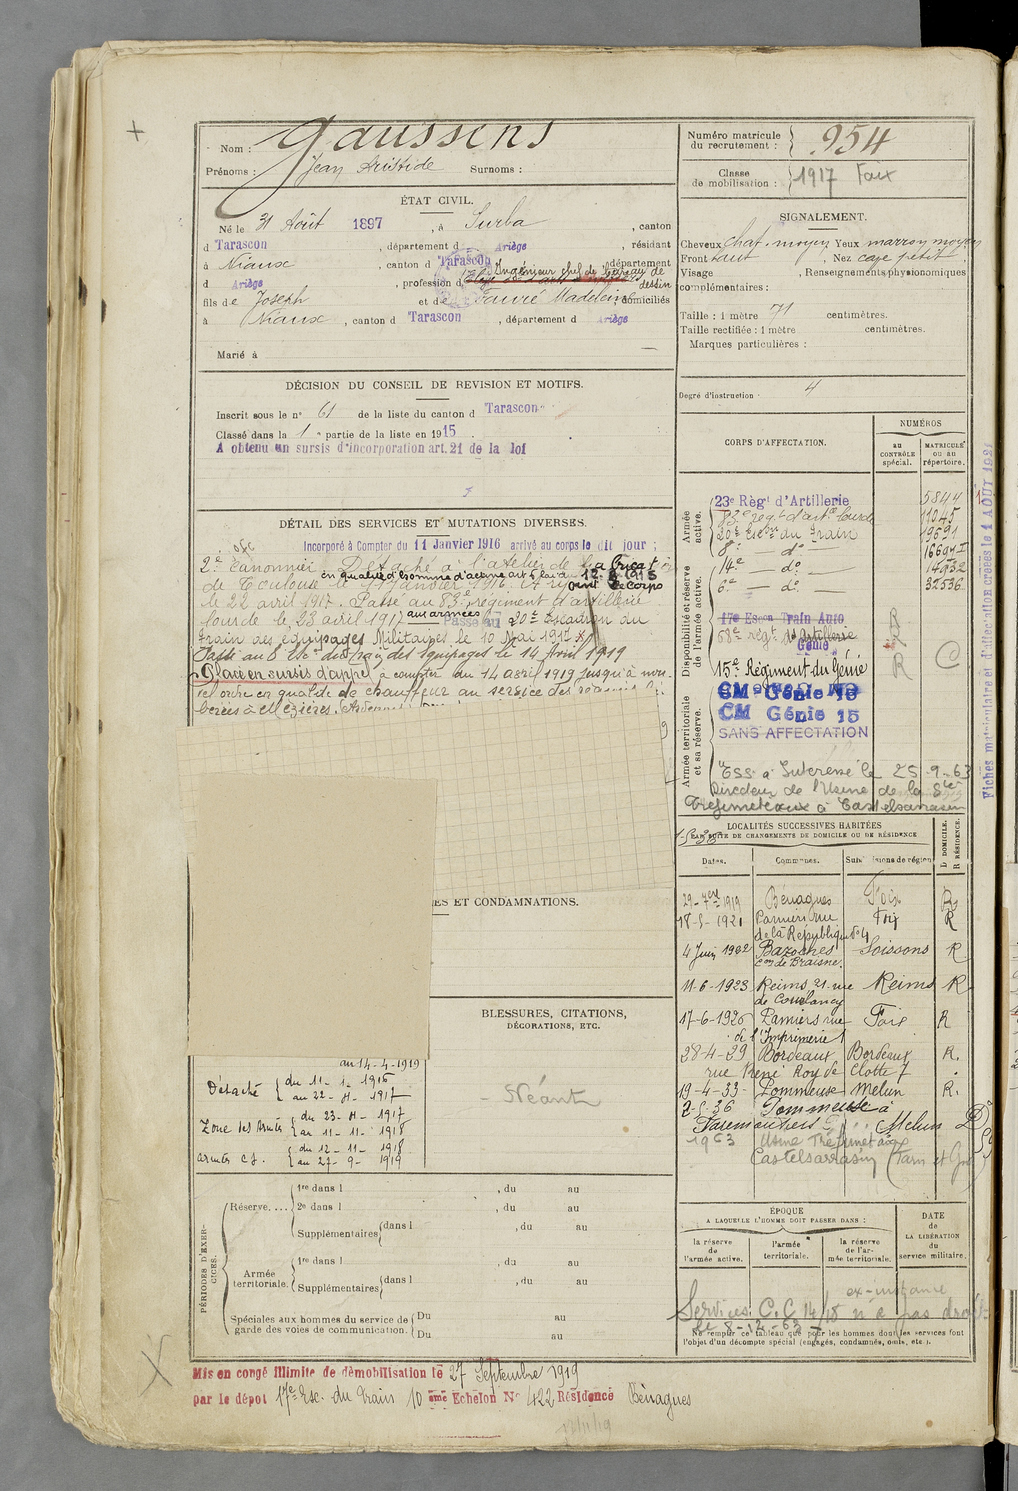 Nom : Gaussens
Prénoms : Jean Aristide Surnoms :
Numéro matricule du recrutement : 954
Classe de mobilisation : 1917 Foix
ÉTAT CIVIL.
Né le 31 Août 1897, à Surba, canton
d Tarascon, département d Ariège, résidant
à Niaux, canton d Tarascon, département
d Ariège, profession d Ingénieur chef de bureau de dessin
fils de Joseph et de Fauré Madeleine domiciliés
à Niaux, canton d Tarascon, département d Ariège
Marié à
SIGNALEMENT.
Cheveux chat. moyen Yeux marron moyen
Front haut, Nez cave petit,
Visage , Renseignements physionomiques
complémentaires :
Taille : 1 mètre 71 centimètres.
Taille rectifiée : 1 mètre centimètres.
Marques particulières :
Degré d'instruction : 4
DÉCISION DU CONSEIL DE REVISION ET MOTIFS.
Inscrit sous le n° 61 de la liste du canton d Tarascon
Classé dans la 1e partie de la liste en 1915
A obtenu un sursis d'incorporation art. 21 de la loi
DÉTAIL DES SERVICES ET MUTATIONS DIVERSES.
Incorporé à Compter du 11 Janvier 1916 arrivé au corps le dit jour ;
2e Canonnier. Détaché à l'atelier de
en qualité d'homme d'
de Toulouse le Janvier 1916
le 22 avril 1917. Passé au 83e régiment d'artillerie
lourde le 23 avril 1917 aux armées Passé au 20e Escadron du
train des équipages Militaires le 10 Mai 1917
Passé au 8 Esc. du train des équipages le 14 Avril 1919
Placé en sursis d'appel à compter du 14 avril 1919 jusqu'à nou-
vel ordre en qualité de chauffeur au service des régions li-
bérées à Mézières. Ardennes
CORPS D'AFFECTATION.
NUMÉROS
au CONTRÔLE spécial.
MATRICULE ou au répertoire.
Armée active.
23e Régt d'Artillerie 5844
83e régt d'arte lourde 11045
20e Escon du Train 19691
8e — do — 16697
14e — do — 14932
6e — do — 32536
Disponibilité et réserve de l'armée active.
17e Escon Train Auto
58e régt d'Artillerie
Génie
15e Régiment du Génie
CM Génie 15
CM Génie 15
SANS AFFECTATION
Armée territoriale et sa réserve.
Ess. à Intéressé le 25-9-63
Directeur de l'Usine de la Sté
Tréfimétaux à Castelsarrasin
Fiches matriculaire et d'affectation créées le 1 AOUT 1921
LOCALITÉS SUCCESSIVES HABITÉES
PAR SUITE DE CHANGEMENTS DE DOMICILE OU DE RÉSIDENCE
Dates. Communes. Subdivisions de région. D DOMICILE. R RÉSIDENCE.
29-7bre 1919 Bénagues Foix R
18-5-1921 Pamiers rue Foix R
de la République No 4
4 Juin 1922 Bazoches Soissons R
con de Braisne.
11-6-1923 Reims, 21 rue Reims R
de Courlancy
17-6-1926 Pamiers rue Foix R
de l'Imprimerie 1
28-4-29 Bordeaux Bordeaux R.
rue René Roy de Clotte 7
19-4-33 Pommeuse Melun R.
2-5-36 Pommeuse à
Faremoutiers Melun D
1963 Usine Tréfimétaux
Castelsarrasin (Tarn et Gne)
ES ET CONDAMNATIONS.
BLESSURES, CITATIONS,
DÉCORATIONS, ETC.
Néant
au 14-4-1919
Détaché { du 11-1-1916
au 22-4-1917
Zone des Armées { du 23-4-1917
au 11-11-1918
Armées { du 12-11-1918
au 27-9-1919
PÉRIODES D'EXERCICES.
Réserve.... 1re dans l , du au
2e dans l , du au
Supplémentaires dans l , du au
Armée territoriale. 1re dans l , du au
Supplémentaires dans l , du au
Spéciales aux hommes du service de garde des voies de communication. Du au
Du au
ÉPOQUE
A LAQUELLE L'HOMME DOIT PASSER DANS :
la réserve de l'armée active.
l'armée territoriale.
la réserve de l'armée territoriale.
DATE de LA LIBÉRATION du service militaire.
Services C.C 14/18 n'a pas droit
le 8-12-63
Ne remplir ce tableau que pour les hommes dont les services font
l'objet d'un décompte spécial (engagés, condamnés, omis, etc.).
Mis en congé illimité de démobilisation le 27 Septembre 1919
par le dépôt 17e Esc. du Train 10 ème Echelon N° 422 Résidence Bénagues